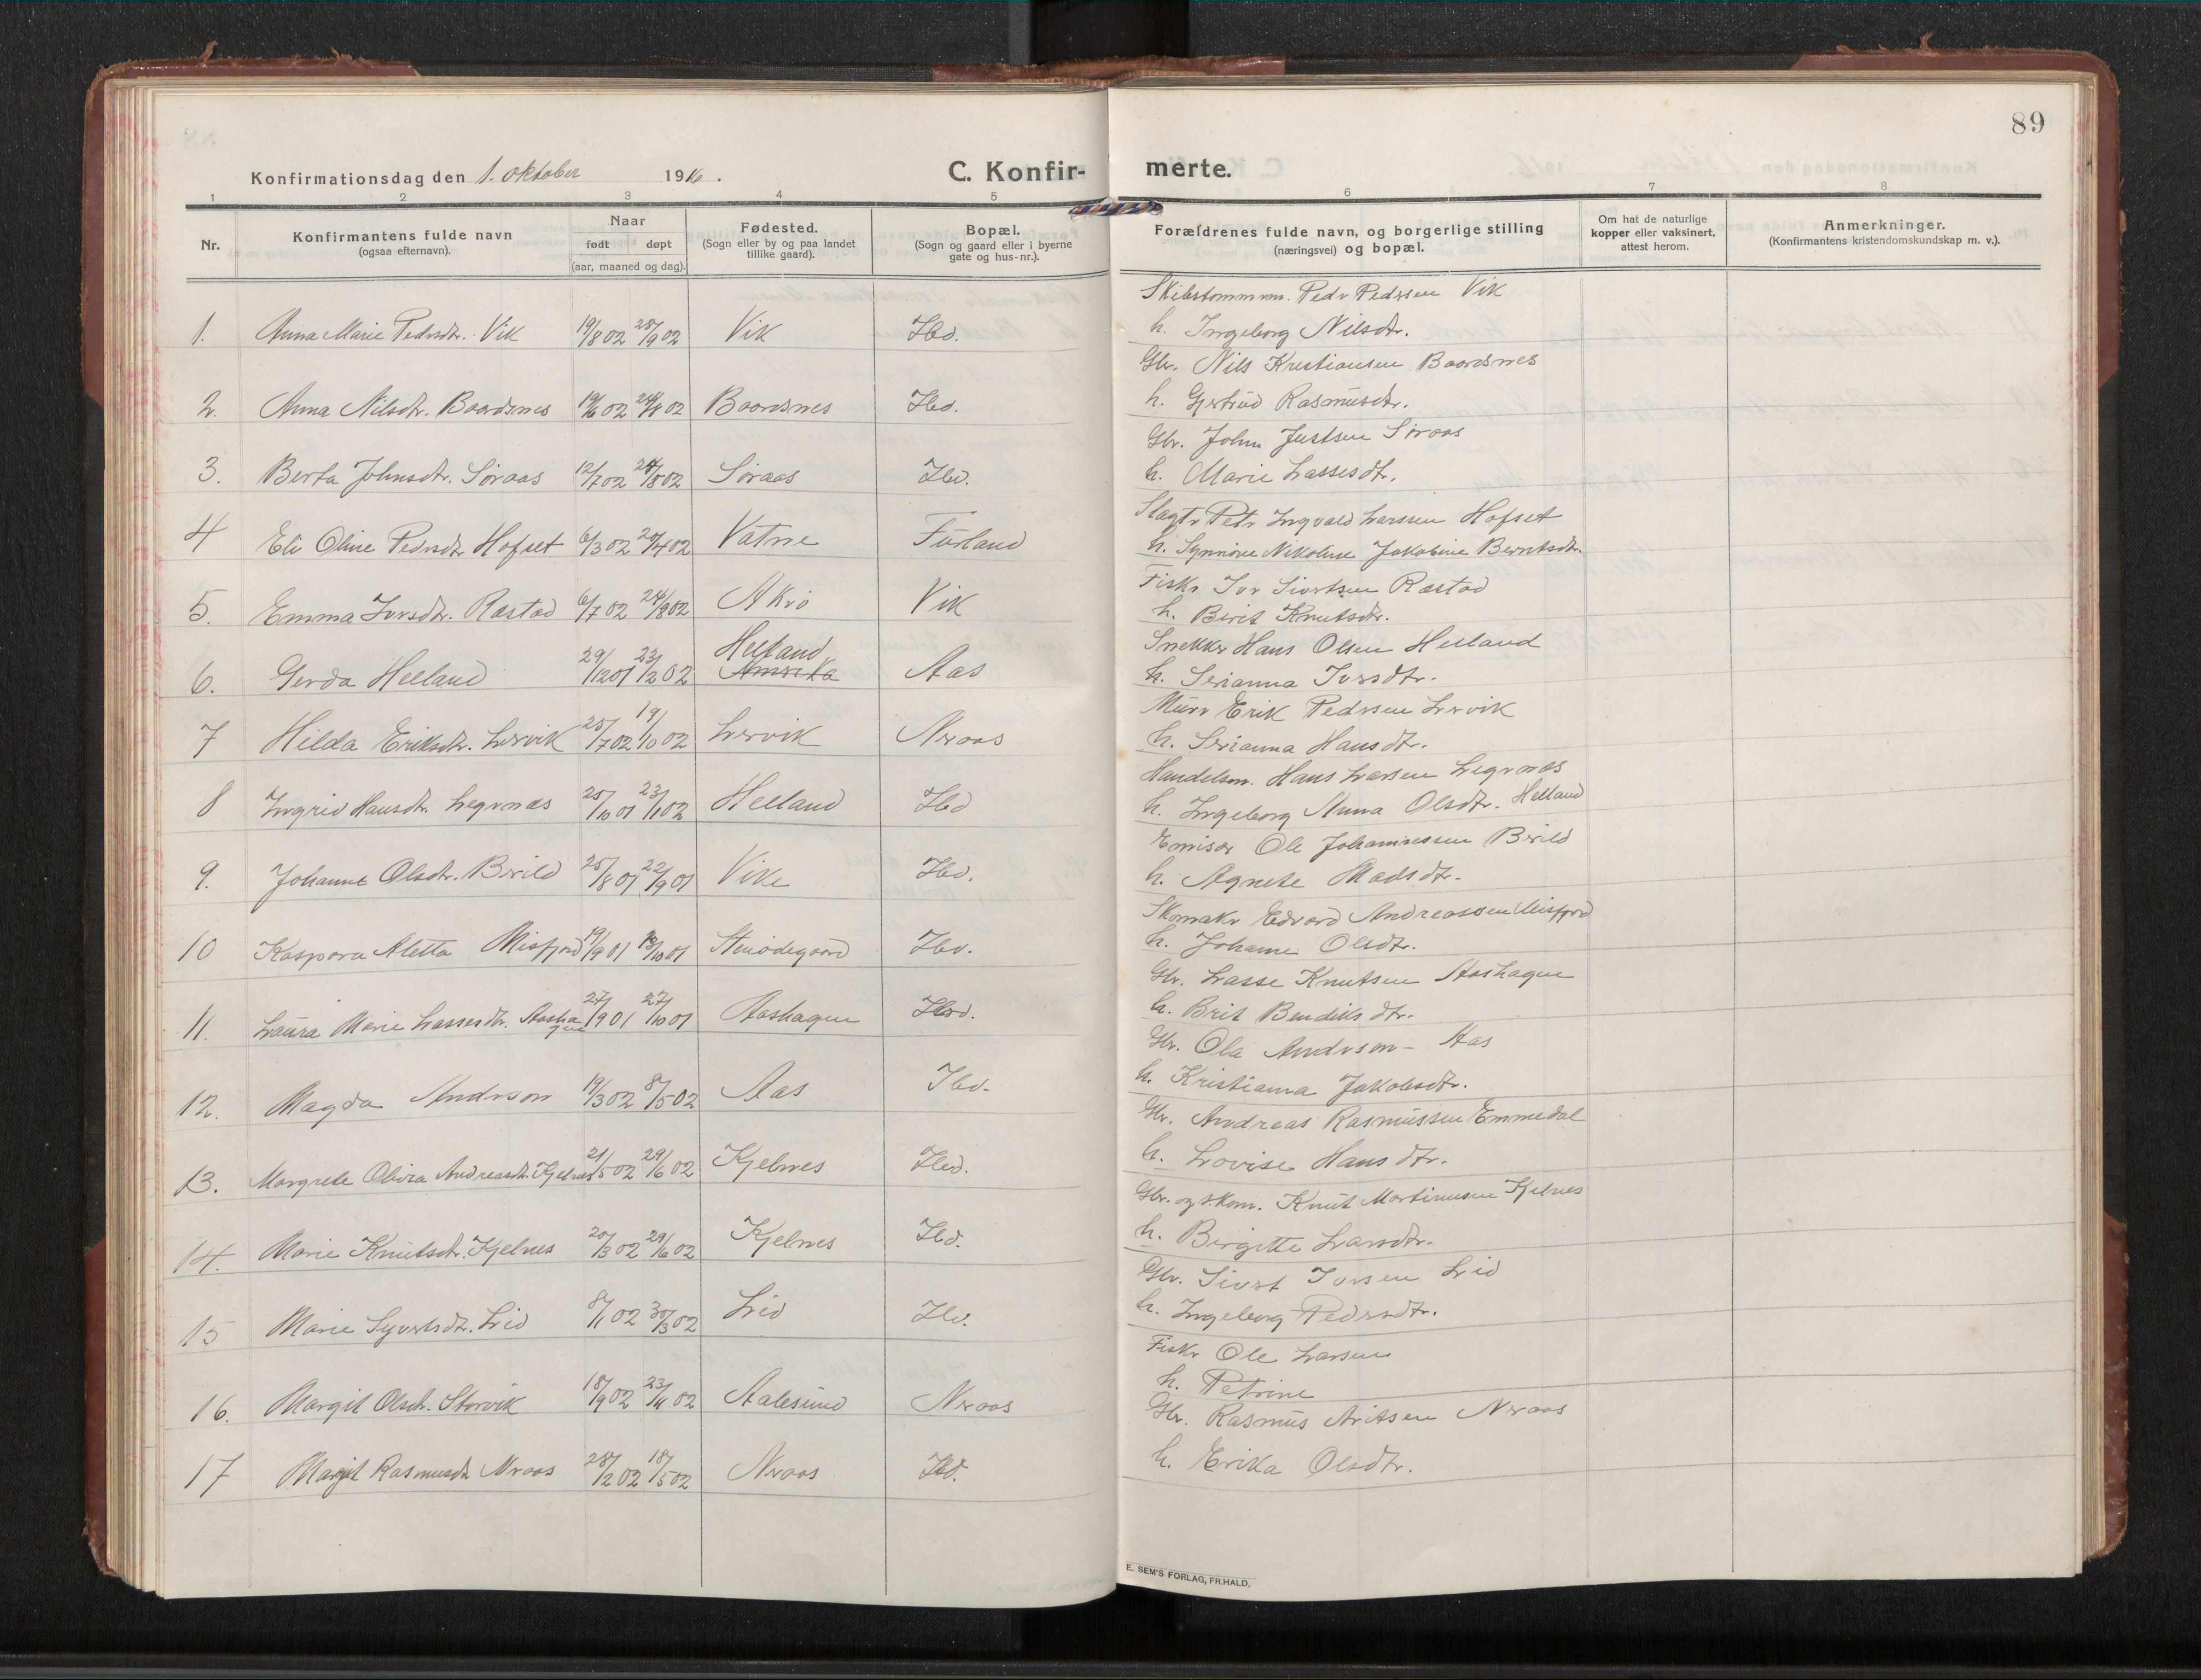 89
Konfirmationsdag den 1. oktober 1916.
C. Konfir-
merte.
1 2 3 4 5 6 7 8
Nr.
Konfirmantens fulde navn
(ogsaa efternavn).
Naar
født døpt
(aar, maaned og dag).
Fødested.
(Sogn eller by og paa landet
tillike gaard).
Bopæl.
(Sogn og gaard eller i byerne
gate og hus-nr.).
Forældrenes fulde navn, og borgerlige stilling
(næringsvei) og bopæl.
Om hat de naturlige
kopper eller vaksinert,
attest herom.
Anmerkninger.
(Konfirmantens kristendomskundskap m. v.).
Skibstømmerm. Peder Pedersen Vik
1. Anna Marie Pedersdtr. Vik 19/8 02 28/9 02 Vik Ibd. h. Ingeborg Nilsdtr.
Gbr. Nils Kristiansen Baardsnes
2. Anna Nilsdtr. Baardsnes 19/6 02 24/8 02 Baardsnes Ibd. h. Gjertrud Rasmusdtr.
Gbr. John Justsen Søraas
3. Berta Johnsdtr. Søraas 12/7 02 24/8 02 Søraas Ibd. h. Marie Lassesdtr.
Slagter Peter Ingvald Larssen Hofset
4 Eli Oline Pedersdtr Hofset 6/3 02 20/4 02 Vatne Furland h. Synnøve Nikoline Jakobine Berntsdtr.
Fisker Iver Sivertsen Røstad
5. Emma Iversdtr. Røstad 6/7 02 24/8 02 Akrø Vik h. Berit Knutsdtr.
Snekker Hans Olsen Helland
Helland
6. Gerda Helland 29/12 01 23/2 02 Amerika Aas h. Serianna Iversdtr.
Murer Erik Pedersen Lervik
7 Hilda Eriksdtr. Lervik 25/7 02 19/10 02 Lervik Neraas h. Serianna Hansdtr.
Handelsm. Hans Larsen Legernæs
8 Ingrid Hansdtr. Legernæs 25/10 01 23/1 02 Helland Ibd h. Ingeborg Anna Olsdtr. Helland
Emisær Ole Johannessen Berild
9. Johanne Olsdtr. Berild 25/8 01 22/9 01 Vike Ibd. h. Agnete Madsdtr.
Skomaker Edvard Andreassen Misfjord
10 Kaspara Aletta Misfjord 19/9 01 13/10 01 Stenødegaard Ibd. h. Johanne Olsdtr.
Gbr. Lasse Knutsen Aashagen
11. Laura Marie Lassesdtr. Aashagen 27/9 01 27/10 01 Aashagen Ibd. h. Brit Bendiksdtr.
Gbr. Ola Anderson - Aas
12. Magda Anderson 19/3 02 8/5 02 Aas Ibd. h. Kristianna Jakobsdtr.
Gbr. Andreas Rasmussen Emmedal
13. Margrete Olivia Andreasdtr. Kjelnes 21/5 02 29/6 02 Kjelnes Ibd. h. Lovise Hansdtr.
Gbr. og skom. Knut Martinusen Kjelnes
14. Marie Knutsdtr. Kjelnes 20/3 02 29/6 02 Kjelnes Ibd. h. Birgitte Larsdtr.
Gbr. Sivert Iversen Lid
15 Marie Syvertsdtr. Lid 8/1 02 30/3 02 Lid Ibd. h. Ingeborg Pedersdtr.
Fisker Ole Larsen
16. Margit Olsdtr. Storvik 18/9 02 23/11 02 Aalesund Neraas h. Petrine
Gbr. Rasmus Aritsen Neraas
17 Margit Rasmusdtr Neraas 28/2 02 18/5 02 Neraas Ibd. h. Erika Olsdtr.
E. SEM'S FORLAG, FR.HALD.